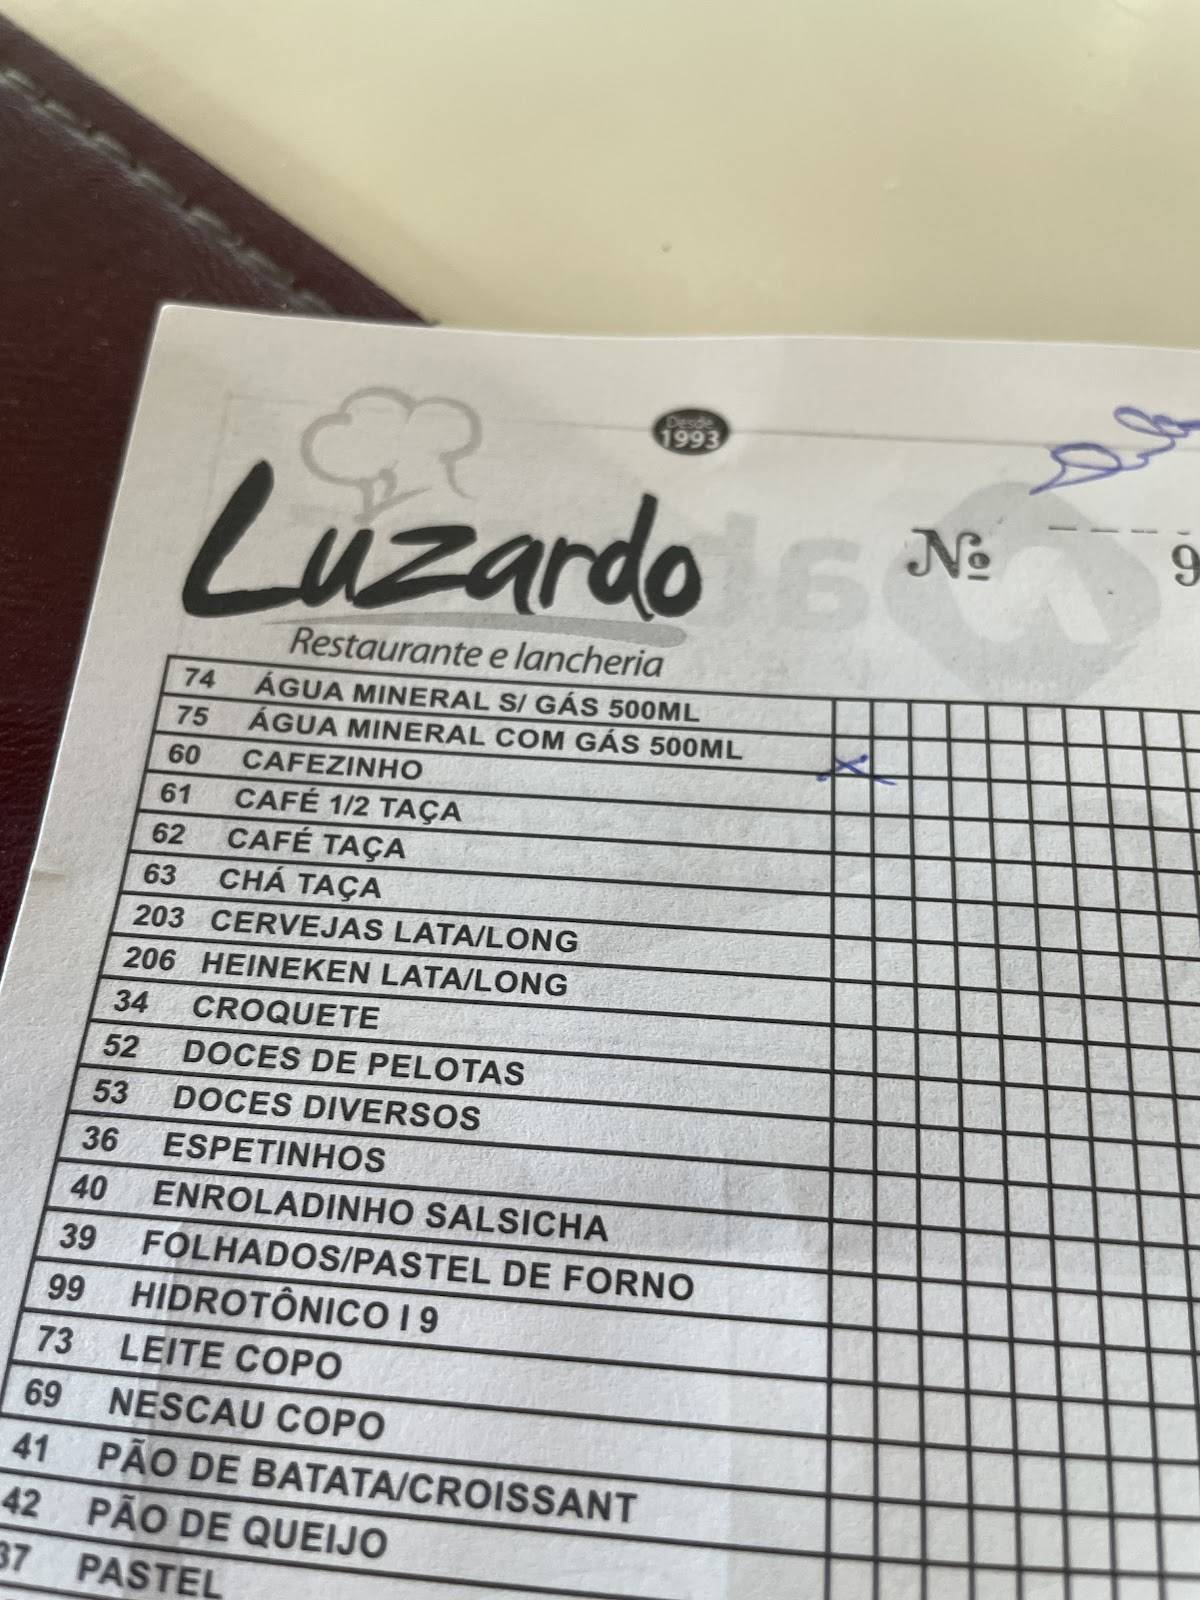 Desde
1993
Luzardo
Restaurante e lancheria
Nº 9
74 ÁGUA MINERAL S/ GÁS 500ML
75 ÁGUA MINERAL COM GÁS 500ML
60 CAFEZINHO
61 CAFÉ 1/2 TAÇA
62 CAFÉ TAÇA
63 CHÁ TAÇA
203 CERVEJAS LATA/LONG
206 HEINEKEN LATA/LONG
34 CROQUETE
52 DOCES DE PELOTAS
53 DOCES DIVERSOS
36 ESPETINHOS
40 ENROLADINHO SALSICHA
39 FOLHADOS/PASTEL DE FORNO
99 HIDROTÔNICO I 9
73 LEITE COPO
69 NESCAU COPO
41 PÃO DE BATATA/CROISSANT
42 PÃO DE QUEIJO
37 PASTEL